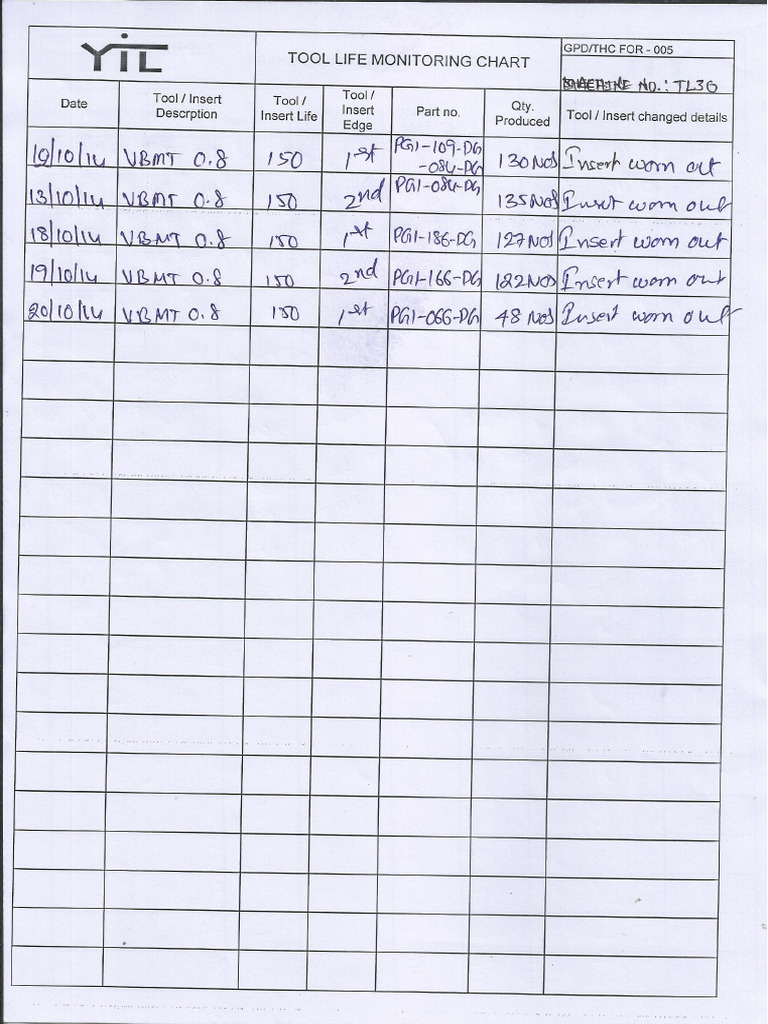 YIL
TOOL LIFE MONITORING CHART
GPD/THC FOR - 005
MACHINE NO.: TL36
Date
Tool / Insert Descrption
Tool / Insert Life
Tool / Insert Edge
Part no.
Qty. Produced
Tool / Insert changed details
10/10/14 VBMT 0.8 150 1st PG1-109-DG -084-DG 130 Nos Insert worn out
13/10/14 VBMT 0.8 150 2nd PG1-084-DG 135 Nos Insert worn out
18/10/14 VBMT 0.8 150 1st PG1-186-DG 127 Nos Insert worn out
19/10/14 VBMT 0.8 150 2nd PG1-166-DG 122 Nos Insert worn out
20/10/14 VBMT 0.8 150 1st PG1-066-DG 48 Nos Insert worn out